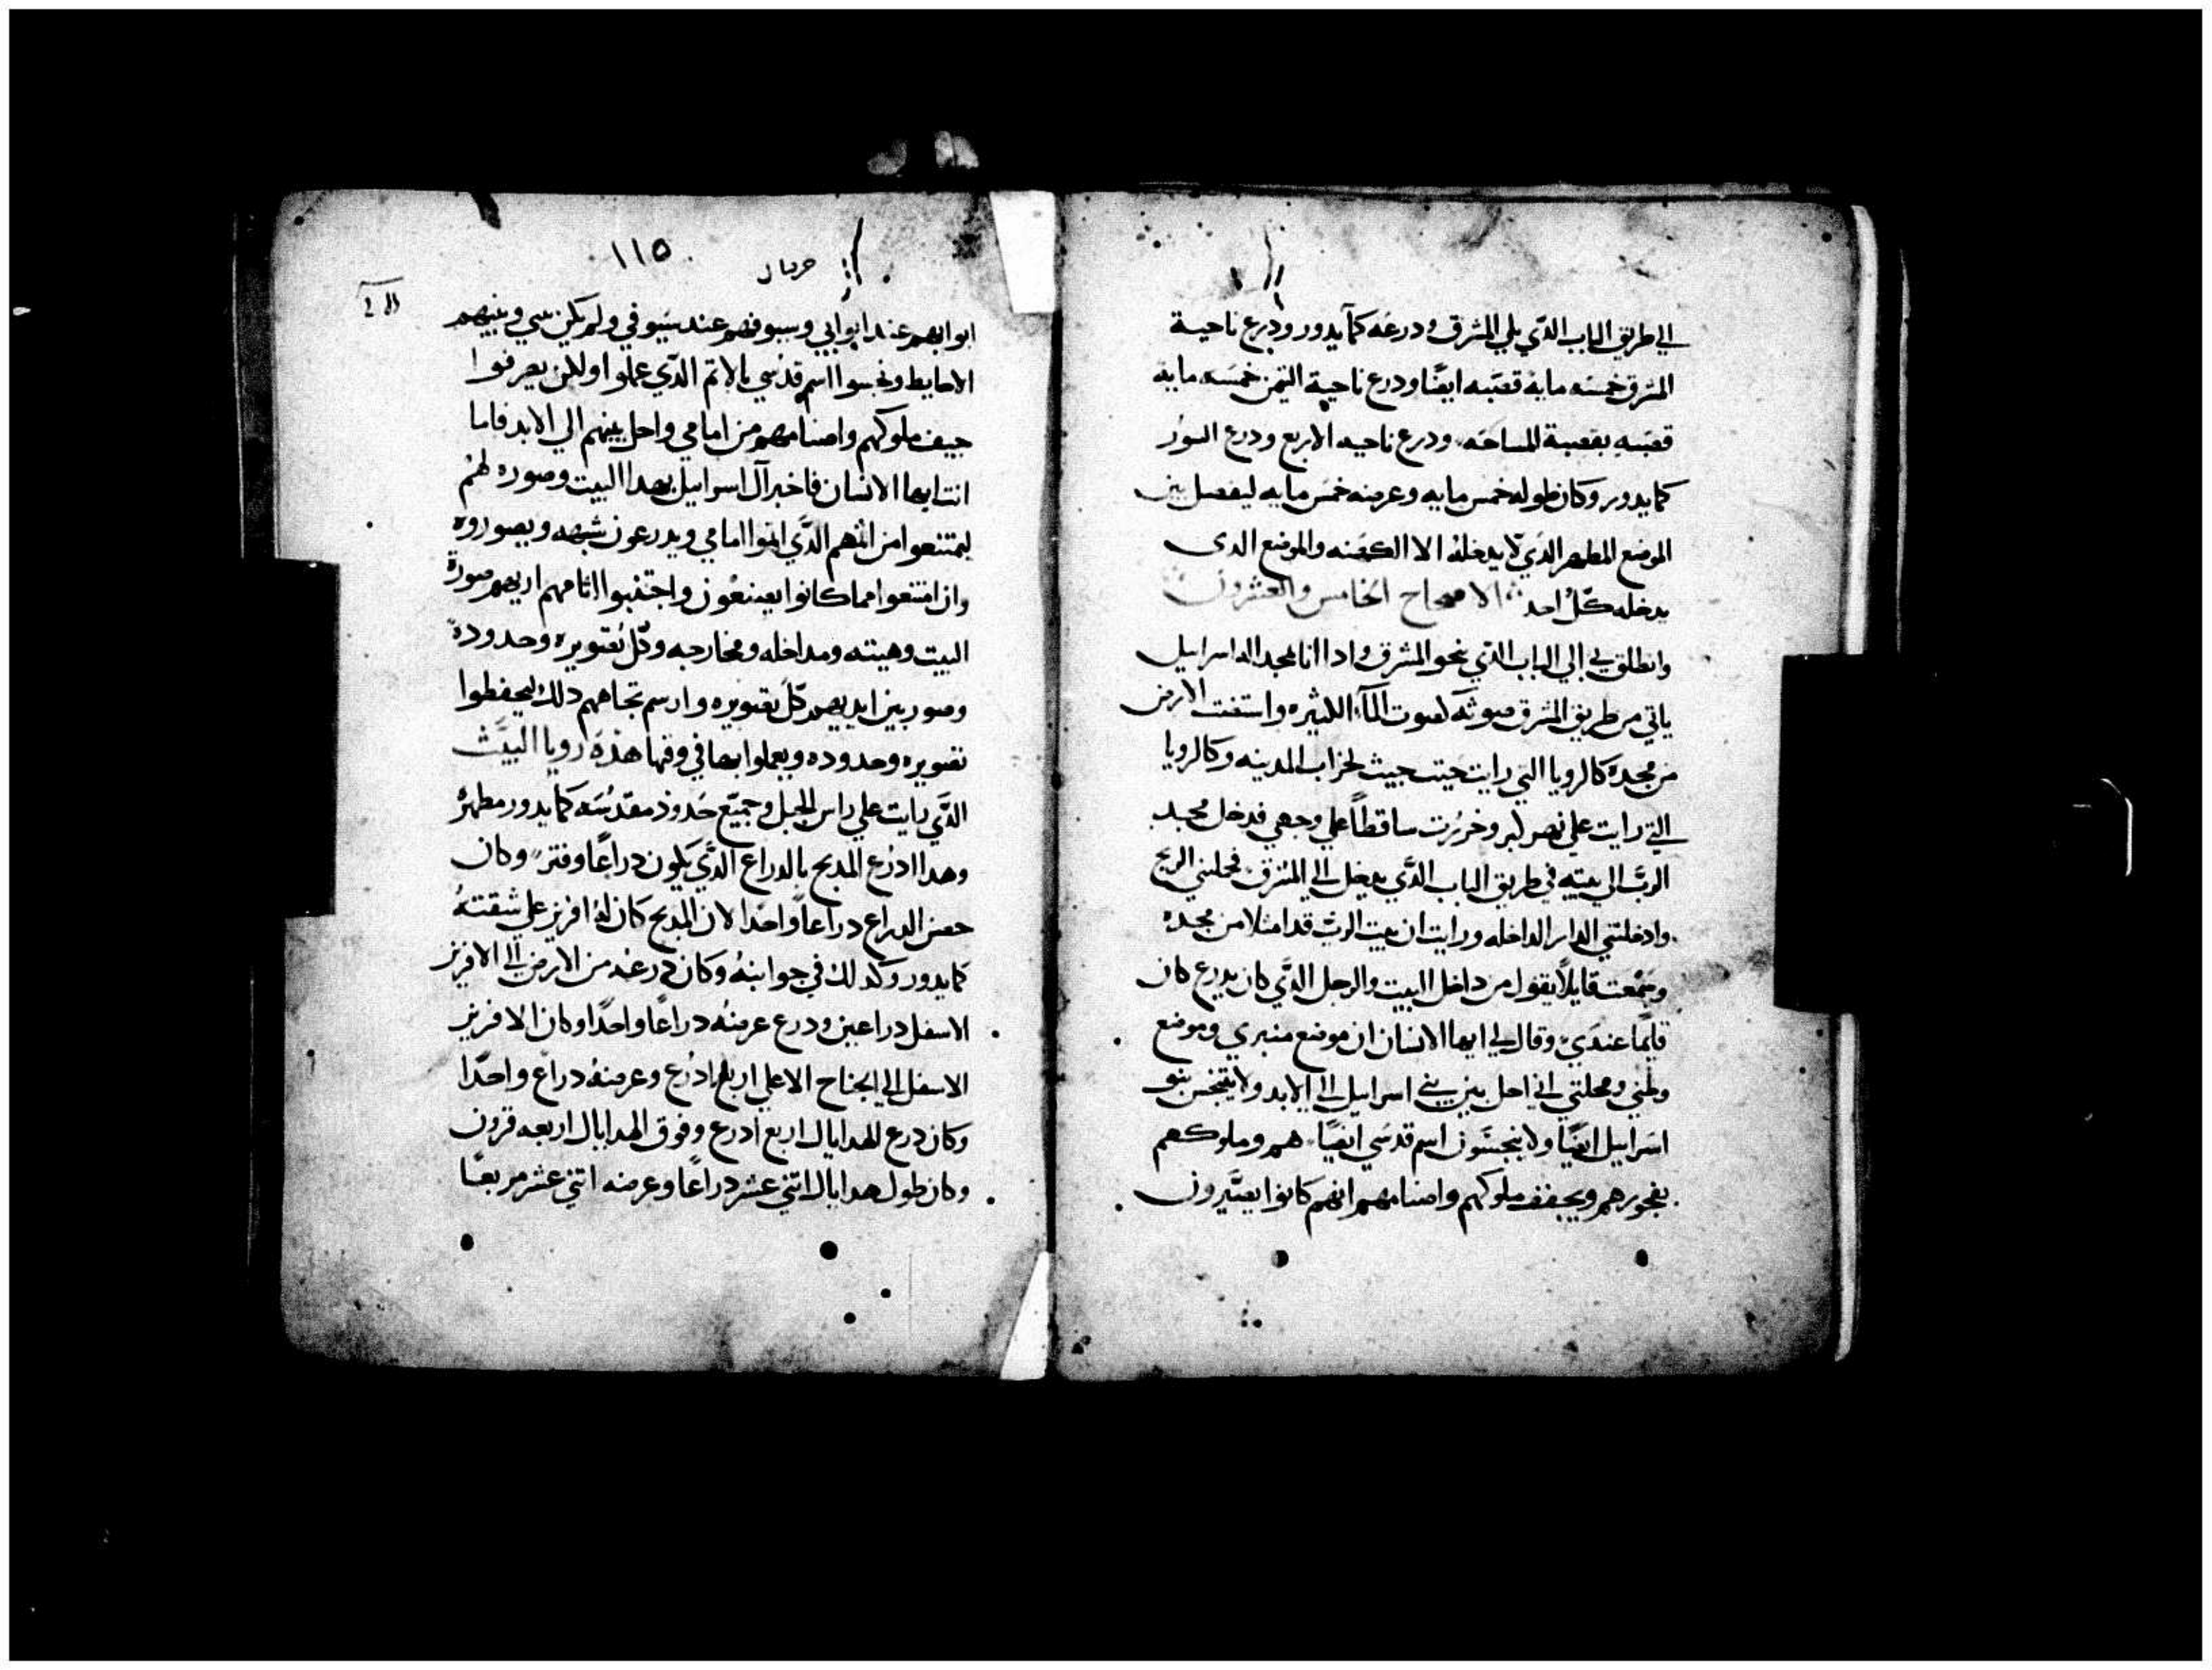 الي طريق الباب الدي يلي المشرق ودرعه كما يدور ودرع ناحية
المشرق خمسه مايه قصبه ايضًا ودرع ناحية التيمن خمسه مايه
قصبه بقصبة المساحه ودرع ناحيه الاربع ودرع السور
كما يدور وكان طوله خمس مايه وعرضه خمس مايه ليفصل بين
الموضع المطهر الدي لا يدخله الا الكهنه والموضع الدى
يدخله كل احد الاصحاح الخامس والعشرون
وانطلق بي الي الباب الدي نحو المشرق واداانا بمجد اله اسراييل
ياتي من طريق المشرق صوته كصوت المآ الكثيره واستضت الارض
من مجده كالرويا التي رايت حيت جيت لخراب المدينه وكالرويا
التي رايت علي نهر كبر وخررت ساقطاً علي وجهي فدخل مجد
الرب الي بيته في طريق الباب الدي يدخل الي المشرق فحملني الريح
وادخلتني الدار الداخله ورايت ان بيت الرب قد امتلا من مجده
وسمعت قايلاً يقول من داخل البيت والرجل الدي كان يدرع كان
قايمًا عندي وقال لي ايها الانسان ان موضع منبري وموضع
وطني ومحلتي اني احل بين بني اسراييل الي الابد ولا يتنجس بنو
اسراييل ايضًا ولا ينجسون اسم قدسي ايضًا هم وملوكهم
بفجورهم وبجيف ملوكهم واصنامهم انهم كانوا يصيرون
١١٥
حزقيال
ابوابهم عند ابوابي وسيوفهم عند سيوفي ولم يكن بيني وبينهم
الا حايط ونجسوا اسم قدسي بالاتم الدي عملوا ولكن يعرفوا
جيف ملوكهم واصنامهم من امامي واحل بينهم الي الابد فاما
انت ايها الانسان فاخبر آل اسراييل بهدا البيت وصوره لهم
ليمتنعوا من اثمهم الدي اتوا امامي ويدرعون شبهه ويصوروه
وان امتنعوا مما كانوا يصنعون واجتنبوا اثامهم اريهم صورة
البيت وهيته ومداخله ومخارجه وكل تصويره وحدوده
وصور بين ايديهم كل تصويره وارسم تجاههم دلك ليحفظوا
تصويره وحدوده ويعملوا بها في وقتها هذه رويا البيت
الدي رايت علي راس الجبل وجميع حدوده مقدسه كما يدور مطهره
وهدا ادرع المدبح بالدراع الدي يكون دراعًا وفتر وكان
حضن الدراع دراعاً واحدا لان المدبح كان له افريز علي شفته
كما يدور وكدلك في جوانبه وكان درعه من الارض الي الافريز
الاسفل دراعين ودرع عرضه دراعًا واحدًا وكان الافريز
الاسفل الي الجناح الاعلي اربع ادرع وعرضه دراع واحدًا
وكان درع الهدايال اربع ادرع وفوق الهدايال اربعه قرون
وكان طول هدايال اتني عشر دراعًا وعرضه اتني عشر مربعًا